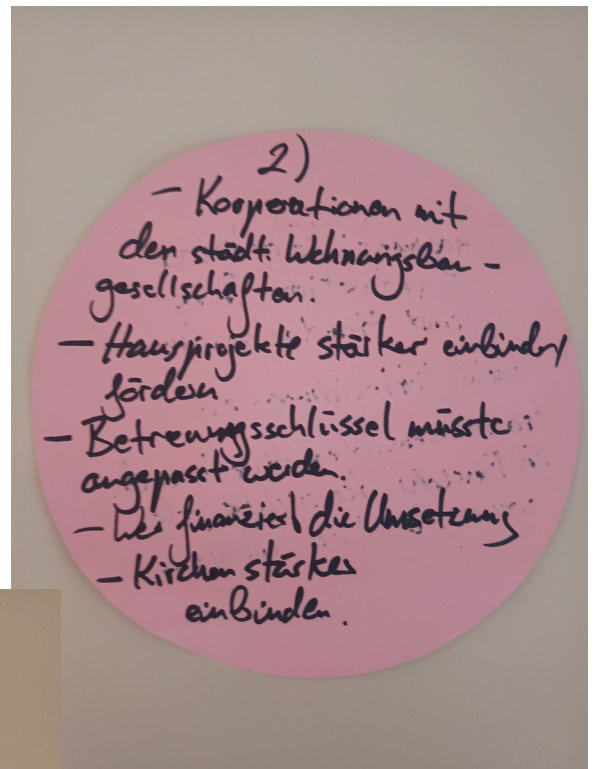 2)
- Korporationen mit
den städt. Wohnungsbau -
gesellschaften.
- Hausprojekte stärker einbinden/
fördern
- Betreuungsschlüssel müsste
angepasst werden.
- Wer finanziert die Umsetzung
- Kirchen stärker
einbinden.